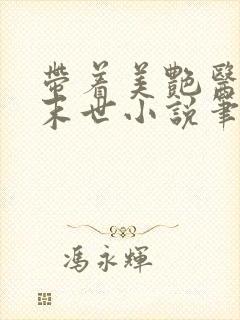 帶着美艷醫
末世小說筆
馮永輝